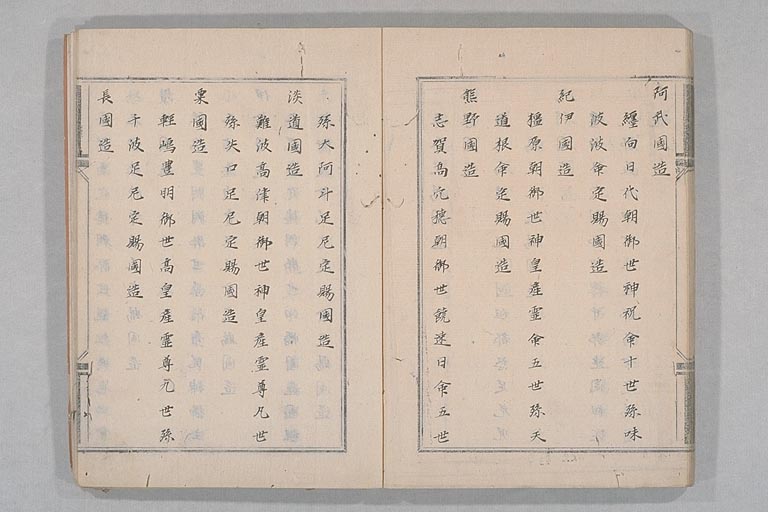 阿武國造
纏向日代朝御世神祝命十世孫味
波波命定賜國造
紀伊國造
橿原朝御世神皇産靈命五世孫天
道根命定賜國造
熊野國造
志賀高穴穂朝御世饒速日命五世
孫大阿斗足尼定賜國造
淡道國造
難波高津朝御世神皇産靈尊九世
孫矢口足尼定賜國造
粟國造
輕嶋豊明御世高皇産靈尊九世孫
千波足尼定賜國造
長國造